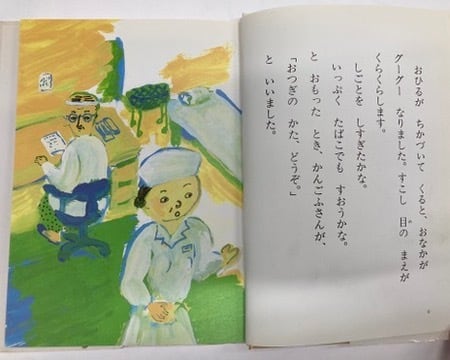 おひるが ちかづいて くると、おなかが
グーグー なりました。すこし 目の まえが
くらくらします。
しごとを しすぎたかな。
いっぷく たばこでも すおうかな。
と おもった とき、かんごふさんが、
「おつぎの かた、どうぞ。」
と いいました。